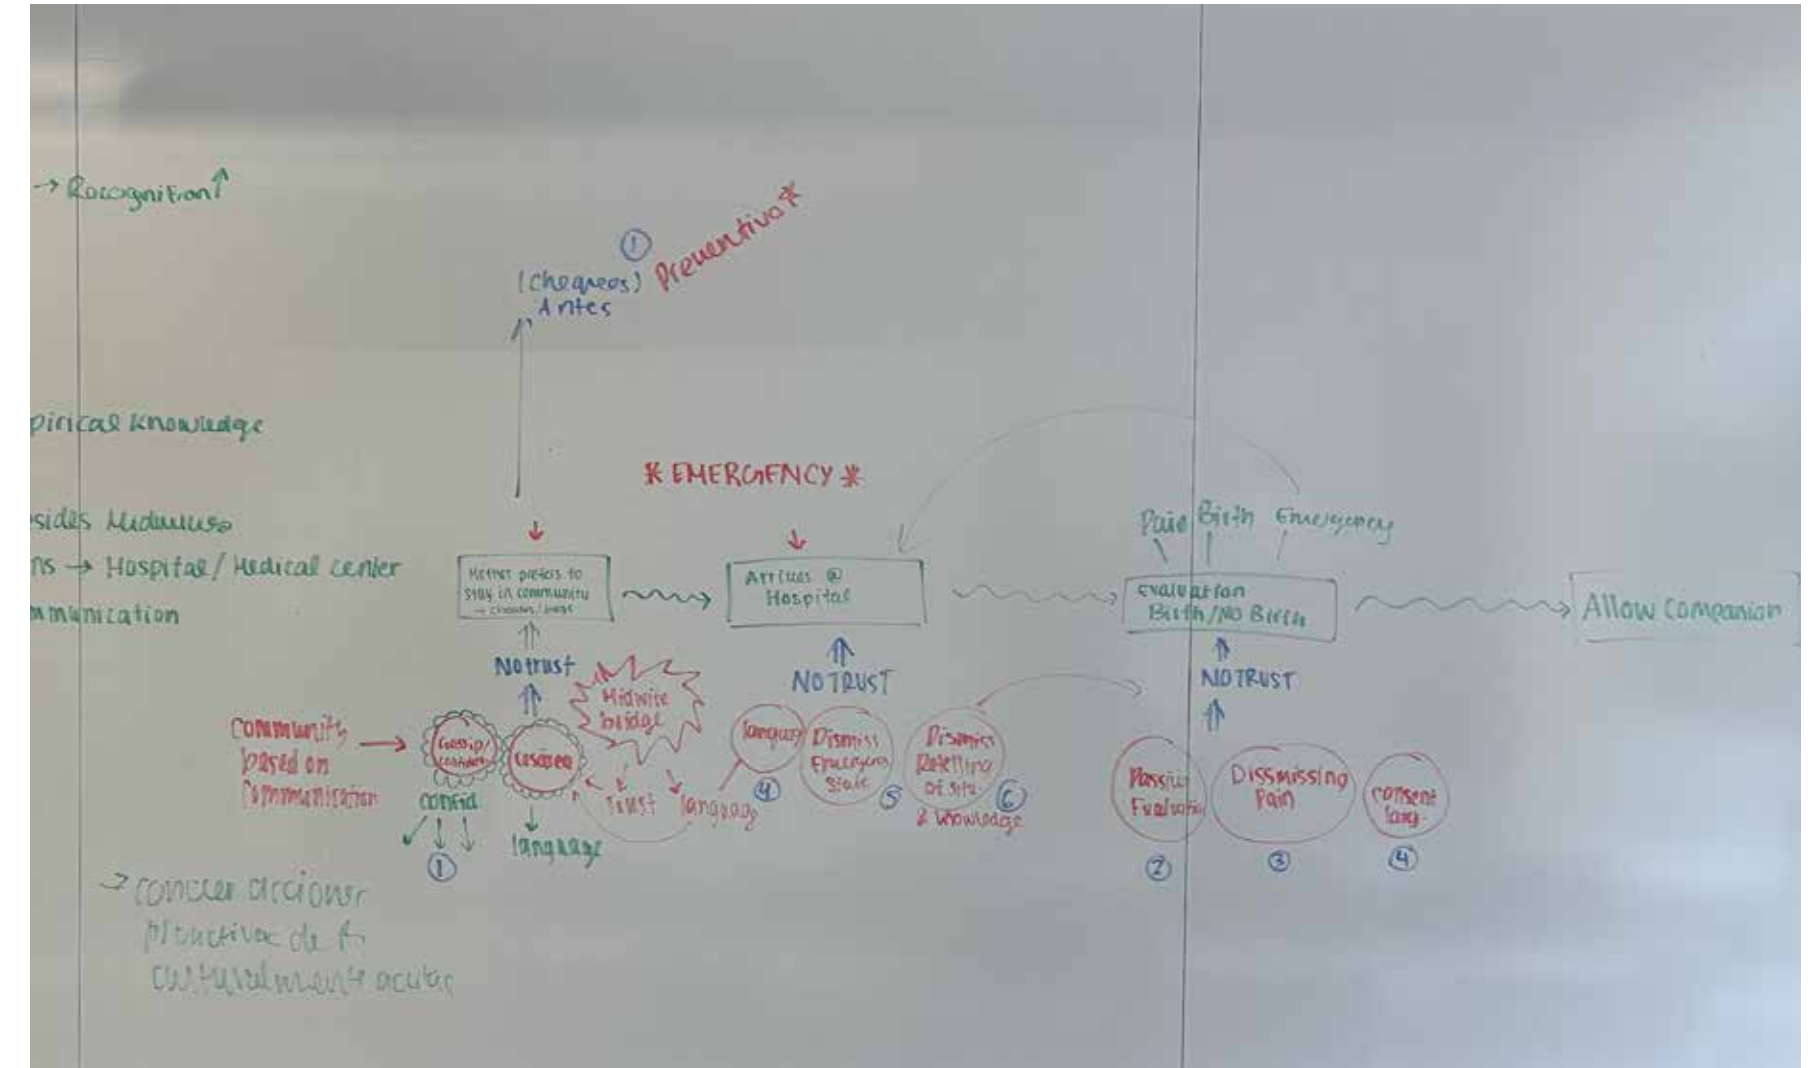 → Recognition ↑
①
(Chequeos) Preventivo *
Antes
pirical Knowledge
* EMERGENCY *
sides Midwives
ns → Hospital / Medical center
mmunication
Pain Birth Emergency
Mother prefers to
stay in community
Arrives @
Hospital
Evaluation
Birth/No Birth
Allow companion
No trust
NO TRUST
NO TRUST
Midwife
bridge
community
based on
communication
→
Gossip/
confid
①
Trust
language
language
language
④
Dismiss
Emergency
State
⑤
Dismiss
Retelling
of situ.
& knowledge
⑥
Passive
Evaluatio
②
Dissmissing
Pain
③
consent
lang.
④
→ conocer acciones
de
culturalmente